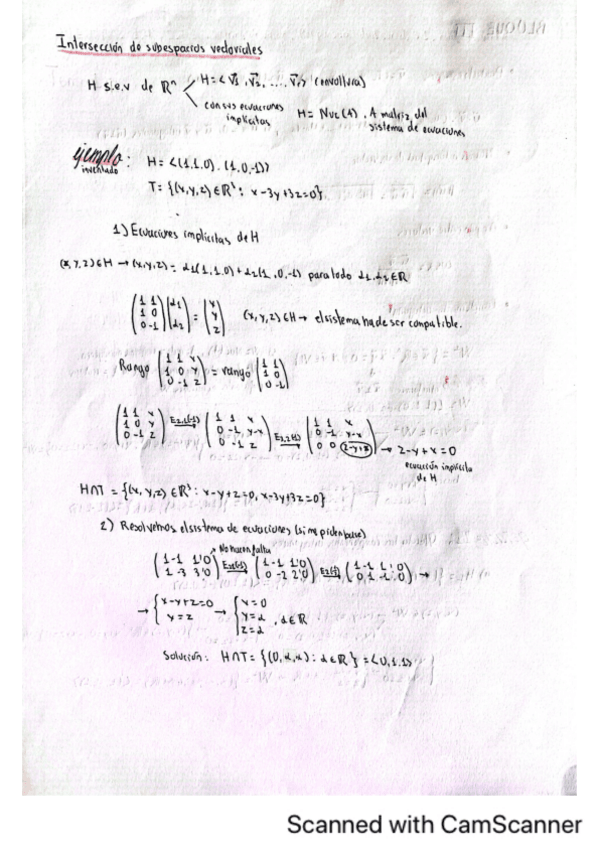 Intersección de subespacios vectoriales
H s.e.v de Rⁿ
H = < v⃗1, v⃗2, ..., v⃗r> (envoltura)
con sus ecuaciones implícitas
H = Nuc(A), A matriz del sistema de ecuaciones
ejemplo:
inventado
H = <(1,1,0), (1,0,-1)>
T = {(x,y,z) ∈ R³ : x-3y+3z=0}
1) Ecuaciones implícitas de H
(x,y,z) ∈ H → (x,y,z) = α1(1,1,0) + α2(1,0,-1) para todo α1, α2 ∈ R
(1 1; 1 0; 0 -1) (α1; α2) = (x; y; z) (x,y,z) ∈ H → el sistema ha de ser compatible.
Rango (1 1 x; 1 0 y; 0 -1 z) = rango (1 1; 1 0; 0 -1)
(1 1 x; 1 0 y; 0 -1 z) → (1 1 x; 0 -1 y-x; 0 -1 z) → (1 1 x; 0 -1 y-x; 0 0 z-y+x) → z-y+x=0
ecuación implícita de H
H∩T = {(x,y,z) ∈ R³ : x-y+z=0, x-3y+3z=0}
2) Resolvemos el sistema de ecuaciones (si me piden base)
No hacen falta
(1 -1 1 0; 1 -3 3 0) → (1 -1 1 0; 0 -2 2 0) → (1 -1 1 0; 0 1 -1 0) →
→ {x-y+z=0; y=z → {x=0; y=α; z=α, α∈R
Solución: H∩T = {(0,α,α) : α∈R} = <0,1,1>
Scanned with CamScanner